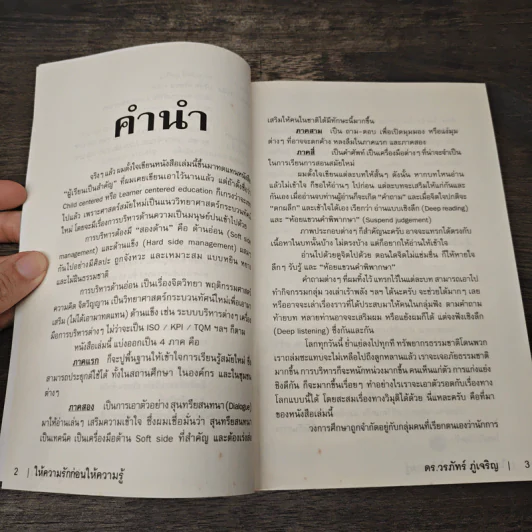 คำนำ
จริงๆ แล้ว ผมตั้งใจเขียนหนังสือเล่มนี้ขึ้นมาทดแทนหนังสือ
"ผู้เรียนเป็นสำคัญ" ที่ผมเคยเขียนเอาไว้นานแล้ว แต่คำสั่งชื่อว่า
Child centered หรือ Learner centered education ก็เกรงว่าจะตกยุค
ไปแล้ว เพราะศาสตร์สมัยใหม่เป็นแนววิทยาศาสตร์กระบวนทัศน์
ใหม่ โดยจะมีเรื่องการบริหารด้านความเป็นมนุษย์ปนเข้าไปด้วย
การบริหารต้องมี "สองด้าน" คือ ด้านอ่อน (Soft side
management) และด้านแข็ง (Hard side management) ผสม
กันไปอย่างมีศิลปะ ถูกจังหวะ และเหมาะสม แบบหยิน หยาง
และไม่ฝืนธรรมชาติ
การบริหารด้านอ่อน เป็นเรื่องจิตวิทยา พฤติกรรมศาสตร์
ความคิด จิตวิญญาณ เป็นวิทยาศาสตร์กระบวนทัศน์ใหม่เพื่อมา
เสริม (ไม่ได้เอามาทดแทน) ด้านแข็ง เช่น ระบบบริหาร เครื่อง
มือการบริหารต่างๆ ไม่ว่าจะเป็น ISO / KPI / TQM ฯลฯ ก็ตาม
หนังสือเล่มนี้ แบ่งออกเป็น 4 ภาค คือ
ภาคแรก ก็จะปูพื้นฐานให้เข้าใจการเรียนรู้สมัยใหม่ ซึ่ง
สามารถประยุกต์ใช้ได้ ทั้งในสถานศึกษา ในองค์กร และในชุมชน
ต่างๆ
ภาคสอง เป็นการเอาตัวอย่าง สุนทรียสนทนา (Dialogue)
มาให้อ่านเล่นๆ เสริมความเข้าใจ ซึ่งผมเชื่อมั่นว่า สุนทรียสนทนา
เป็นเทคนิค เป็นเครื่องมือด้าน Soft side ที่สำคัญ และต้องเร่งส่ง
2 | ให้ความรักก่อนให้ความรู้
เสริมให้คนในชาติได้มีทักษะนี้มากขึ้น
ภาคสาม เป็น ถาม-ตอบ เพื่อเปิดมุมมอง หรือแง่มุม
ต่างๆ ที่อาจจะตกค้าง หลงลืมในภาคแรก และภาคสอง
ภาคสี่ เป็นคำศัพท์ เป็นเครื่องมือต่างๆ ที่น่าจะจำเป็น
ในการเรียนการสอนสมัยใหม่
ผมตั้งใจเขียนแต่ละบทให้สั้นๆ ดังนั้น หากบทไหนอ่าน
แล้วไม่เข้าใจ ก็ขอให้อ่านๆ ไปก่อน แต่ละบทจะเสริมให้แก่กันและ
กันเอง เมื่ออ่านจบท่านผู้อ่านก็จะเกิด "คำถาม" และเมื่อจิตใจปกติจะ
"ตกผลึก" และเข้าใจได้เอง เรียกว่า อ่านแบบเชิงลึก (Deep reading)
และ "ห้อยแขวนคำพิพากษา" (Suspend judgement)
ภาพประกอบต่างๆ ก็สำคัญนะครับ อาจจะแทรกได้ตรงกับ
เนื้อหาในบทนั้นบ้าง ไม่ตรงบ้าง แต่ก็อยากให้อ่านให้เข้าใจ
อ่านไปด้วยดูจิตไปด้วย ตอนใดจิตไม่แช่มชื่น ก็ให้หายใจ
ลึกๆ รับรู้ และ "ห้อยแขวนคำพิพากษา"
คำถามต่างๆ ที่ผมทิ้งไว้ แทรกไว้ในแต่ละบท สามารถเอาไป
ทำกิจกรรมกลุ่ม วงเล่าเร้าพลัง ฯลฯ ได้นะครับ จะช่วยได้มากๆ เลย
หรืออาจจะเล่าเรื่องราวที่ได้ประสบมาให้คนในกลุ่มฟัง ตามคำถาม
ท้ายบท หลายท่านอาจจะเสริมผม หรือแย้งผมก็ได้ แต่จงฟังเชิงลึก
(Deep listening) ซึ่งกันและกัน
โลกทุกวันนี้ ย่ำแย่ลงไปทุกที ทรัพยากรธรรมชาติโดนพวก
เราถลุ่มชะแทบจะไม่เหลือไปถึงลูกหลานแล้ว เราจะเจอภัยธรรมชาติ
มากขึ้น การบริหารก็จะหนักหน่วงมากขึ้น คนเห็นแก่ตัว การแก่งแย่ง
ชิงดีกัน ก็จะมากขึ้นเรื่อยๆ ทำอย่างไรเราจะเอาตัวรอดกับเรื่องทาง
โลกแบบนี้ได้ โดยสะสมเรื่องทางวิมุติได้ด้วย นี่แหละครับ คือที่มา
ของหนังสือเล่มนี้
วงการศึกษาถูกจำกัดอยู่กับกลุ่มคนที่เรียกตนเองว่านักการ
ดร.วรภัทร์ ภู่เจริญ | 3